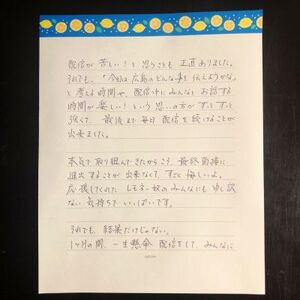 配信が苦しい！と思うことも正直ありました。
それでも、「今日は広島のどんな事を伝えようかな」
と考える時間や、配信中にみんなとお話する
時間が楽しい！という思いの方がずっとずっと
強くて、最後まで毎日配信を続けることが
出来ました。
本気で取り組んできたからこそ、最終面接に
進出することが出来なくて、すごく悔しいし、
応援してくれたレモネー奴のみんなにも申し訳
ない気持ちでいっぱいです。
それでも、結果だけじゃない。
1ヶ月の間、一生懸命配信をして、みんなに